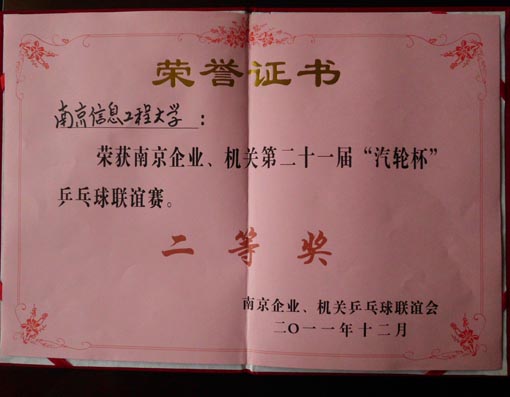 荣誉证书
南京信息工程大学：
荣获南京企业、机关第二十一届“汽轮杯”
乒乓球联谊赛。
二等奖
南京企业、机关乒乓球联谊会
二〇一一年十二月